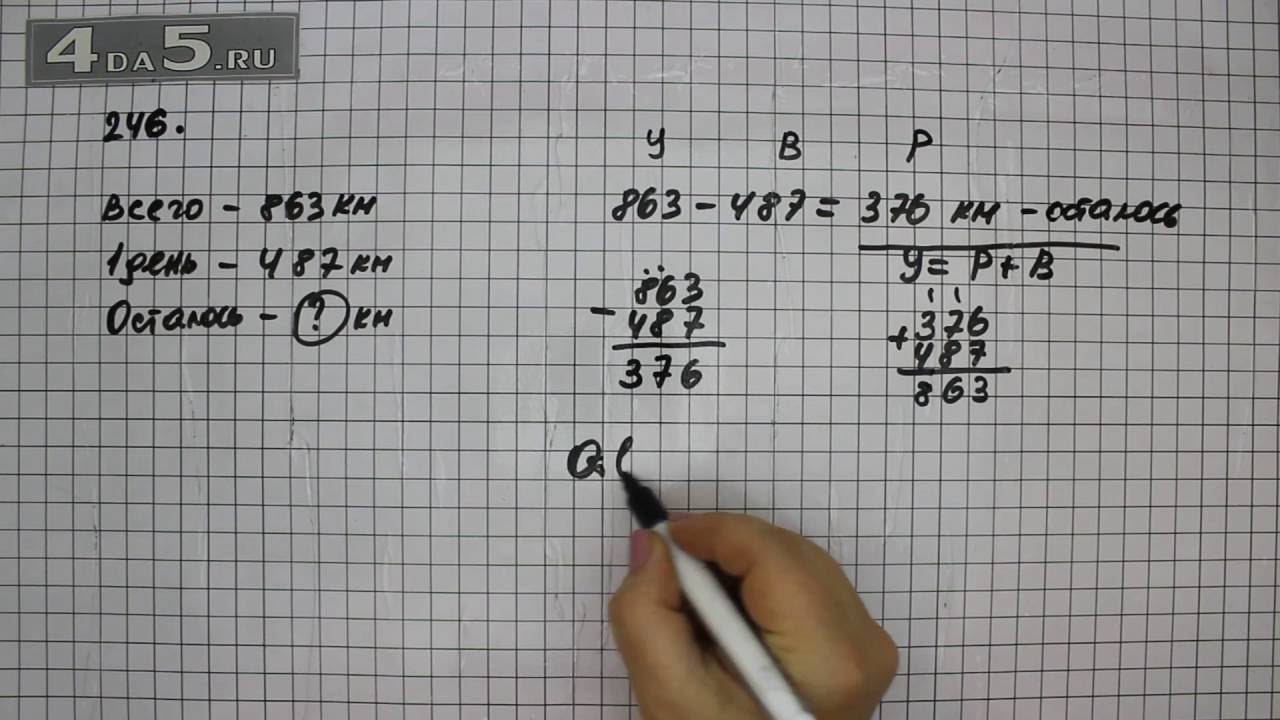 4DA5.RU
246.
Всего - 863 км
1 день - 487 км
Осталось - ? км
У В Р
863 - 487 = 376 км - осталось
У = Р + В
863
- 487
376
1 1
376
+ 487
863